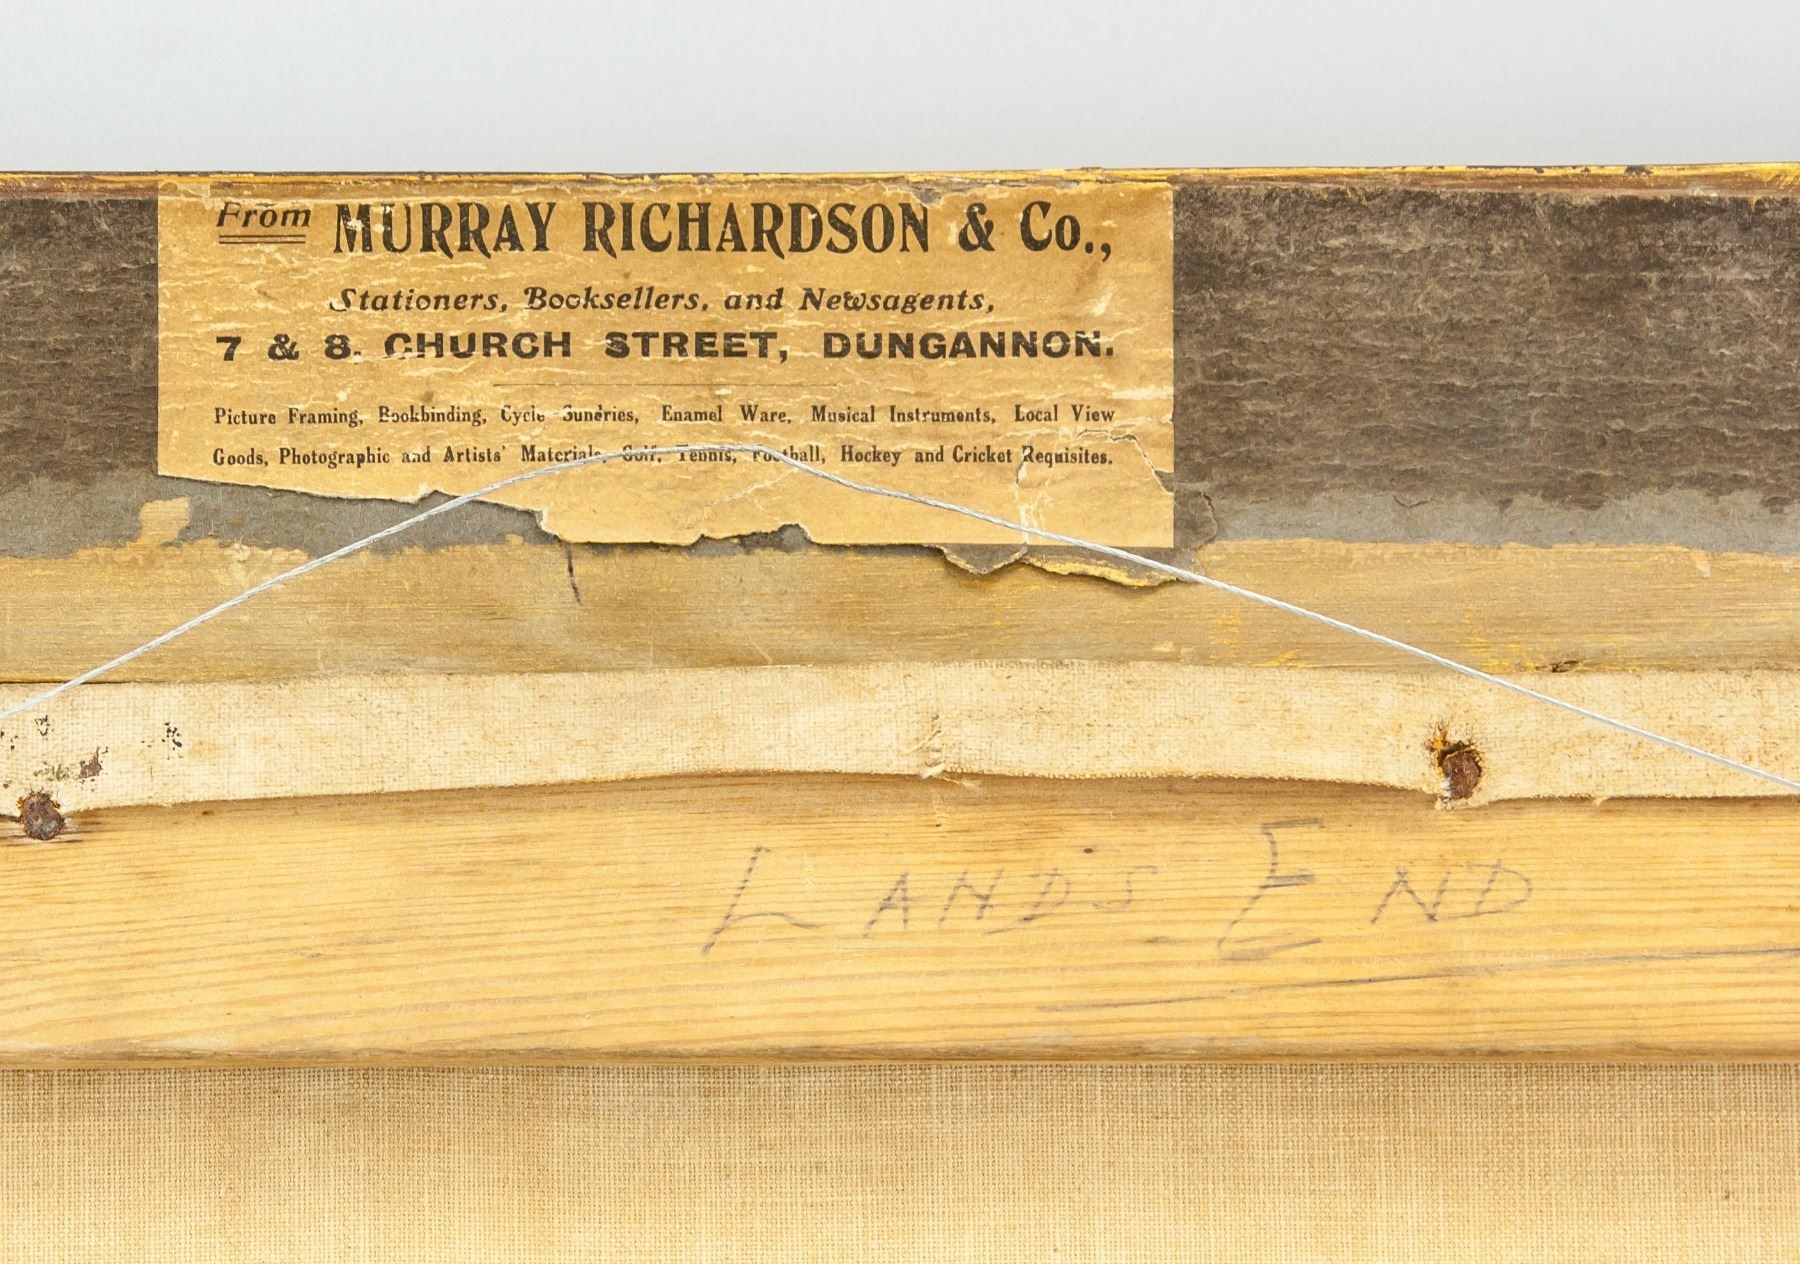 From MURRAY RICHARDSON & Co.,
Stationers, Booksellers, and Newsagents,
7 & 8. CHURCH STREET, DUNGANNON.
Picture Framing, Bookbinding, Cycle Sundries, Enamel Ware, Musical Instruments, Local View
Goods, Photographic and Artists' Materials, Golf, Tennis, Football, Hockey and Cricket Requisites.
LANDS END